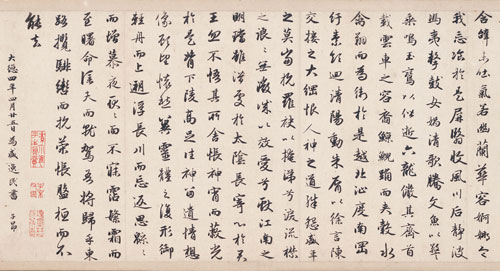 含辭未吐氣若幽蘭華容婀娜令
我忘飡於是屏翳收風川后靜波
馮夷擊鼓女媧清歌騰文魚以警
乘鳴玉鸞以偕逝六龍儼其齊首
載雲車之容裔鯨鯢踴而夾轂水
禽翔而為衛於是越北沚度南岡
紆素領迴清陽動朱脣以徐言陳
交接之大綱恨人神之道殊怨盛年
之莫當抗羅袂以掩涕兮淚流襟
之浪浪無微情以效愛兮獻江南之
明璫雖潛處於太陰長寄心於君
王忽不悟其所舍悵神宵而蔽光
於是背下陵高足往神留遺情想
像顧望懷愁冀靈體之復形御
輕舟而上遡浮長川而忘返思綿綿
而增慕夜耿耿而不寐霑繁霜而
至曙命僕夫而就駕吾將歸乎東
路攬騑轡而抗策悵盤桓而不
能去
大德四年四月廿五日為盛逸民書 子昂